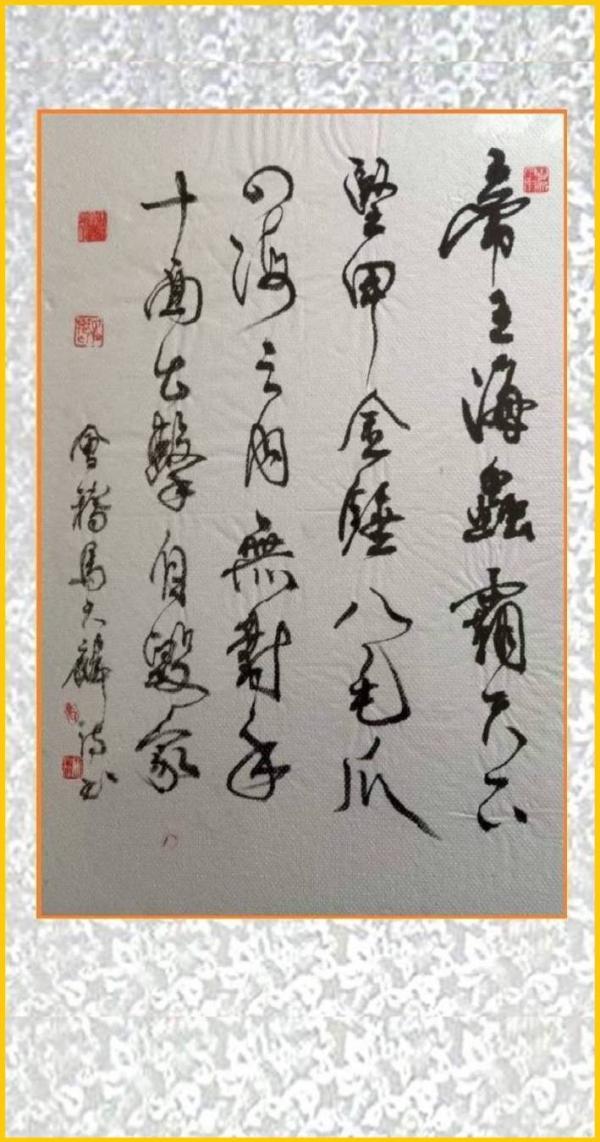 帝王海蟲霸天下
堅甲金錘八毛爪
四海之內無對手
十面出擊自毀家
會稽馬大麟詩书